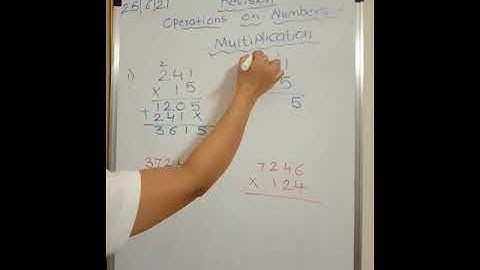 25/6/21
Revision
Operations on Numbers -
Multiplication
1)
2
241
x 15
1205
+ 241x
3615
1
5
5
372
7246
x 124